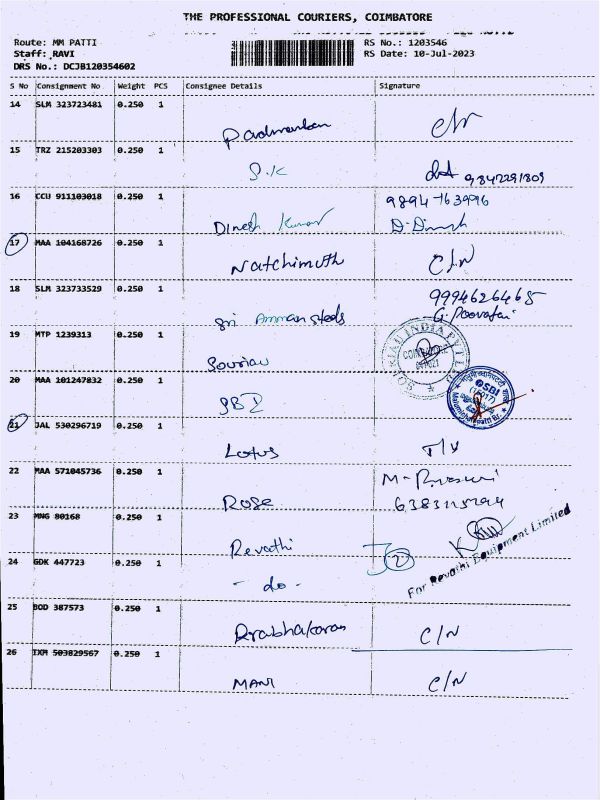 THE PROFESSIONAL COURIERS, COIMBATORE
Route: MM PATTI RS No.: 1203546
Staff: RAVI RS Date: 10-Jul-2023
DRS No.: DCJB120354602
S No Consignment No Weight PCS Consignee Details Signature
14 SLM 323723481 0.250 1
15 TRZ 215203303 0.250 1
S.K 9842291809
16 CCU 911103018 0.250 1 9894763996
Dinesh Kumar D. Dinesh
17 MAA 104168726 0.250 1
Natchimuth C/N
18 SLM 323733529 0.250 1 9994626465
Sri Amman steels G. Poovafai
19 MTP 1239313 0.250 1
Souriau SOURIAU INDIA PVT LTD
COIMBATORE
641021
20 MAA 101247832 0.250 1
SBI SBI
(17017)
21 JAL 530296719 0.250 1
Lotus
22 MAA 571045736 0.250 1
Rose
23 MNG 80168 0.250 1
Revathi 2
For Revathi Equipment Limited
24 GDK 447723 0.250 1
- do -
25 BOD 387573 0.250 1
Prabhakaran C/N
26 IXM 503829567 0.250 1
MANI C/N